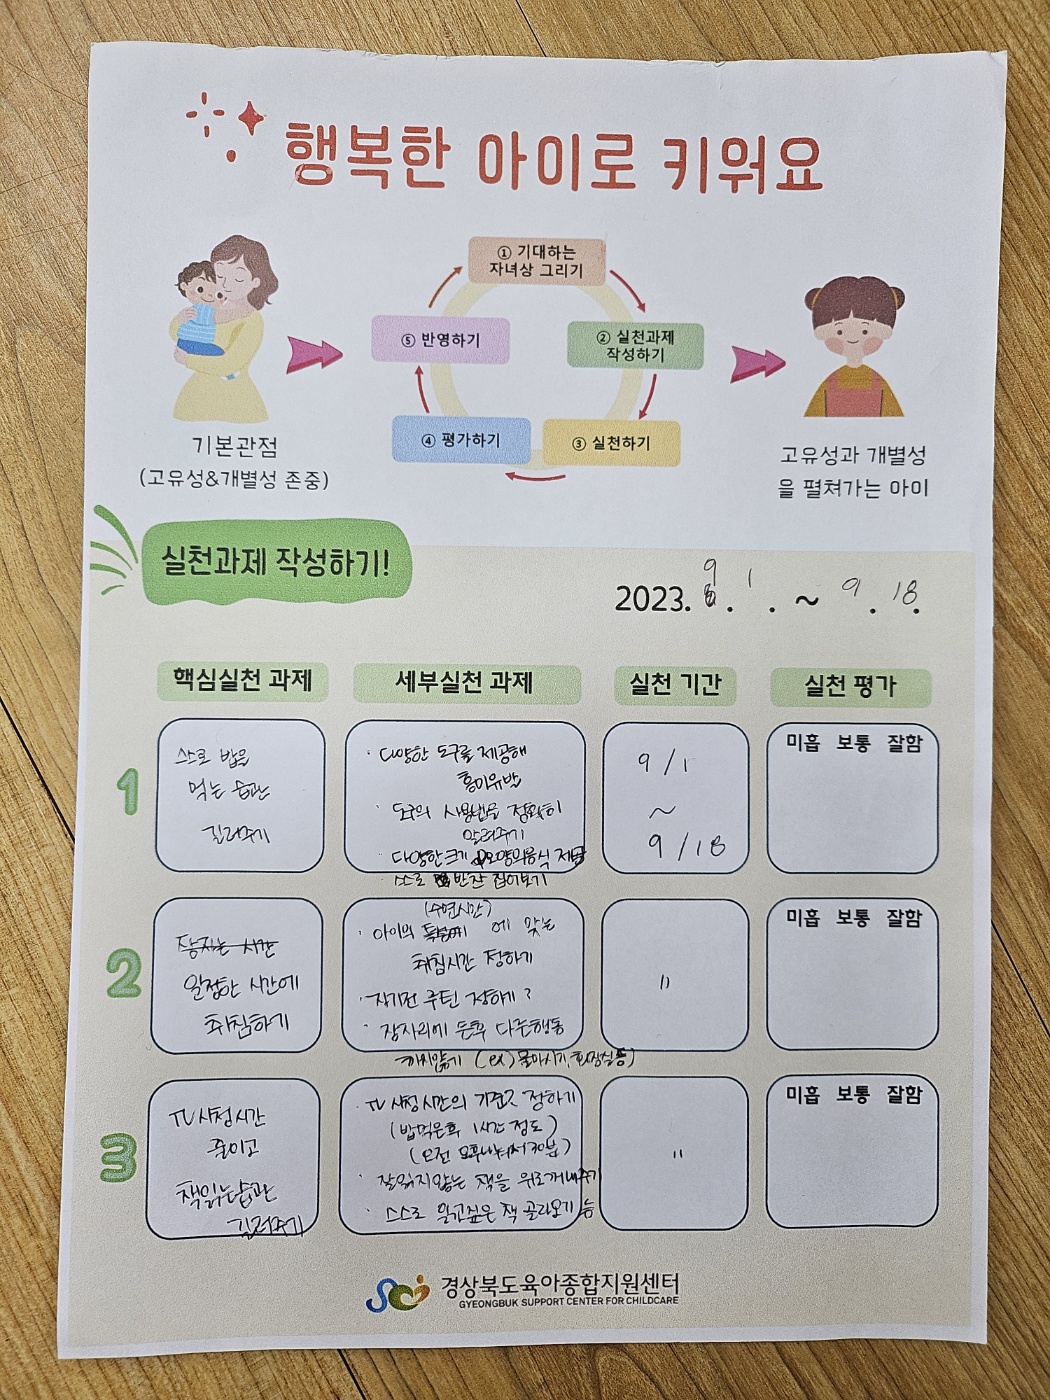 행복한 아이로 키워요
① 기대하는
자녀상 그리기
② 실천과제
작성하기
③ 실천하기
④ 평가하기
⑤ 반영하기
기본관점
(고유성&개별성 존중)
고유성과 개별성
을 펼쳐가는 아미
실천과제 작성하기!
2023. 9. 1. ~ 9. 18.
핵심실천 과제 세부실천 과제 실천 기간 실천 평가
1
스스로 밥을
먹는 습관
길러주기
· 다양한 도구를 제공해
흥미유발
· 도구의 사용법을 정확히
알려주기
· 다양한 크기 모양의 음식 제공
· 스스로 반찬 집어보기
9/1
~
9/18
미흡 보통 잘함
2
잠자는 시간
일정한 시간에
취침하기
(수면시간)
· 아이의 에 맞는
취침시간 정하기
· 자기전 루틴 정하기?
· 잠자리에 든후 다른행동
하지않기 (ex) 물마시기, 화장실 등)
〃
미흡 보통 잘함
3
TV 시청시간
줄이고
책읽는습관
길러주기
· TV 시청시간의 기준 정하기
(밥먹은후 1시간 정도)
(오전 오후 나눠서 30분)
· 잘읽지않는 책을 위로꺼내주기
· 스스로 읽고싶은 책 골라오기 등
〃
미흡 보통 잘함
경상북도육아종합지원센터
GYEONGBUK SUPPORT CENTER FOR CHILDCARE